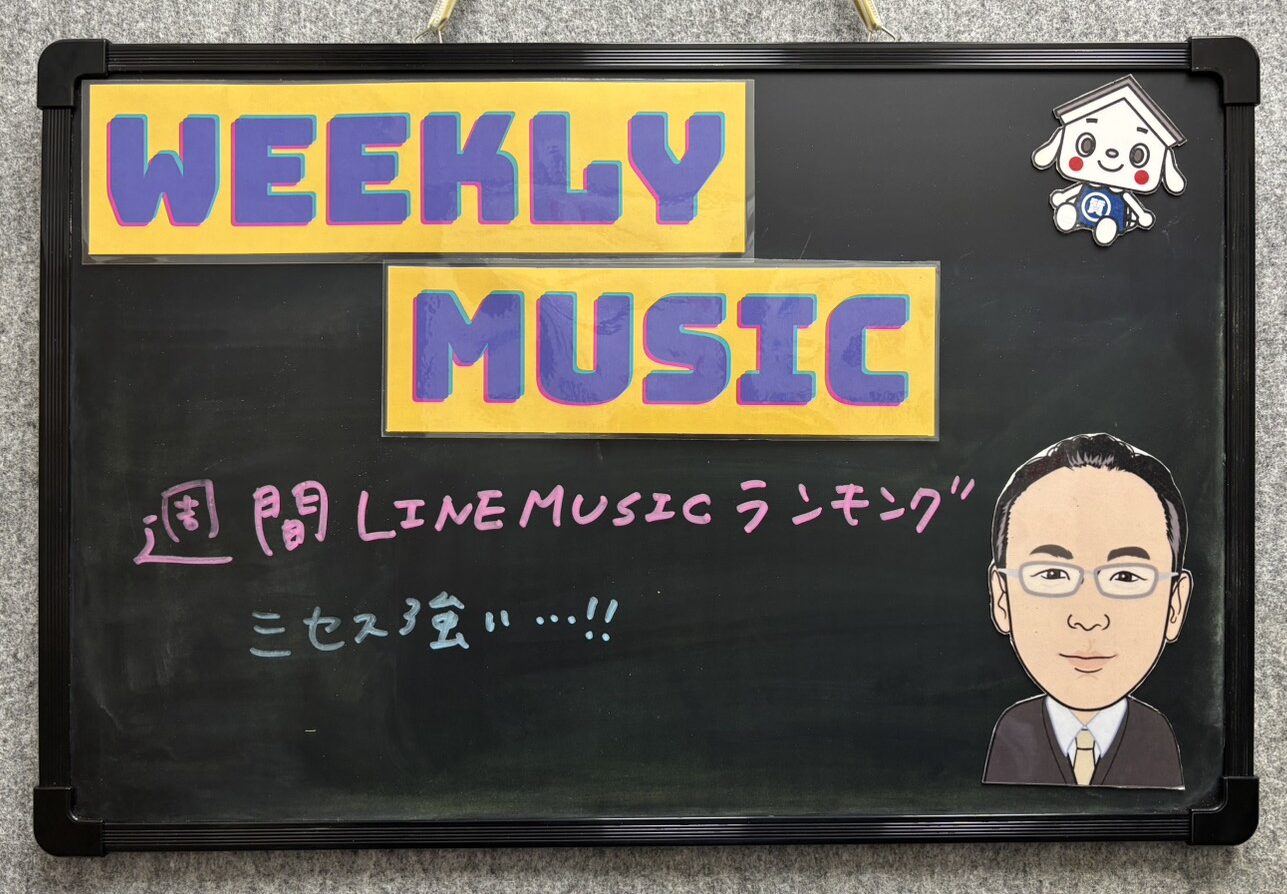 WEEKLY
質
MUSIC
週間LINE MUSICランキング
ミセス強い…!!